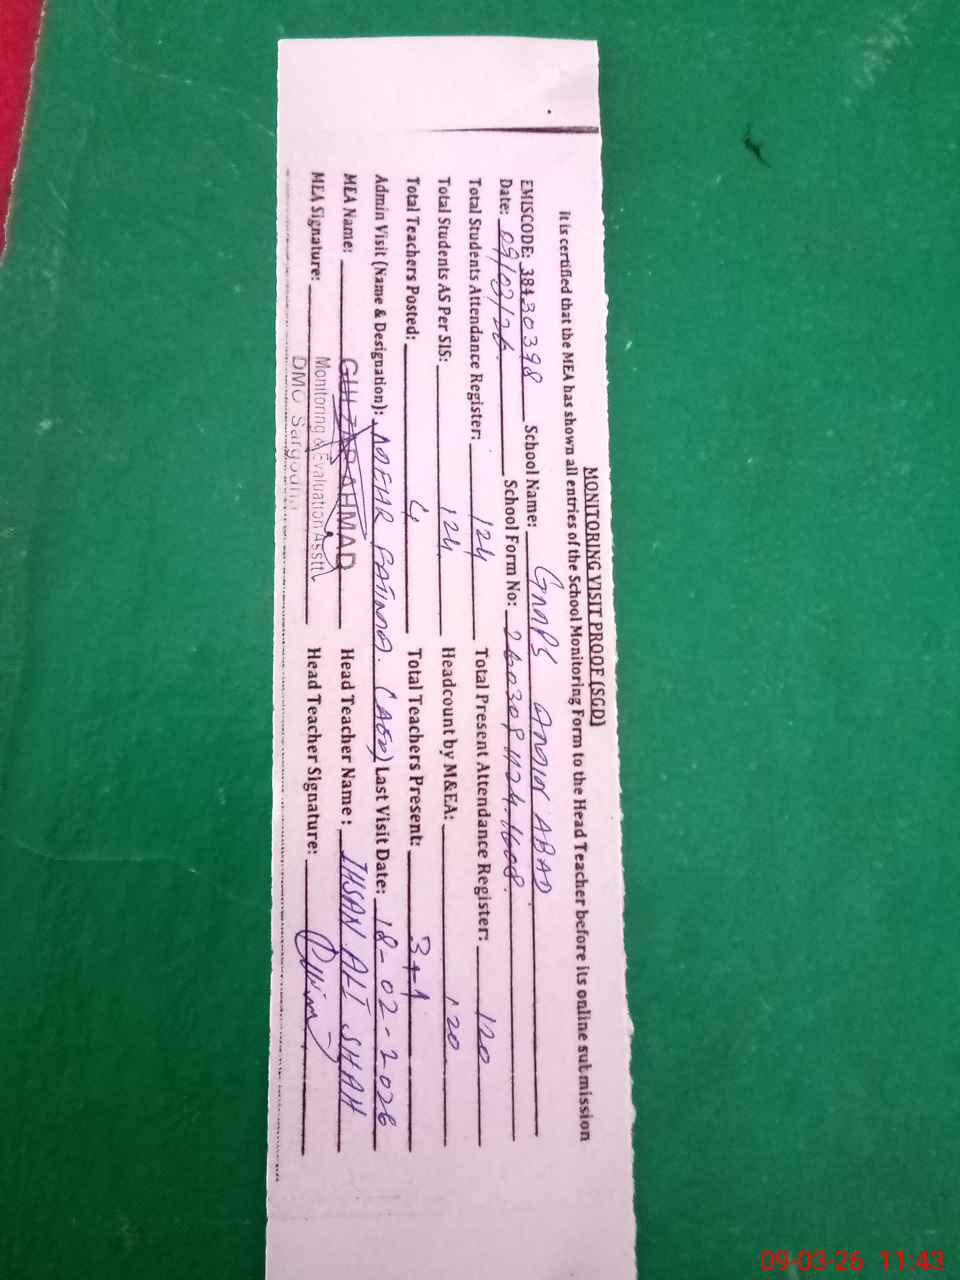 MONITORING VISIT PROOF (SGD)
It is certified that the MEA has shown all entries of the School Monitoring Form to the Head Teacher before its online submission
EMISCODE: 38430398 School Name: GMMPS ABAD
Date: 09/03/26. School Form No:
Total Students Attendance Register: 124 Total Present Attendance Register: 120
Total Students AS Per SIS: 124 Headcount by M&EA: 120
Total Teachers Posted: 4 Total Teachers Present: 3+1
Admin Visit (Name & Designation): FATIMA. (AEO) Last Visit Date: 18-02-2026
MEA Name: GULZAR AHMAD Head Teacher Name: IHSAN ALI SHAH
Monitoring & Evaluation Asstt
MEA Signature: Head Teacher Signature:
DMO Sargodha
09-03-26 11:43